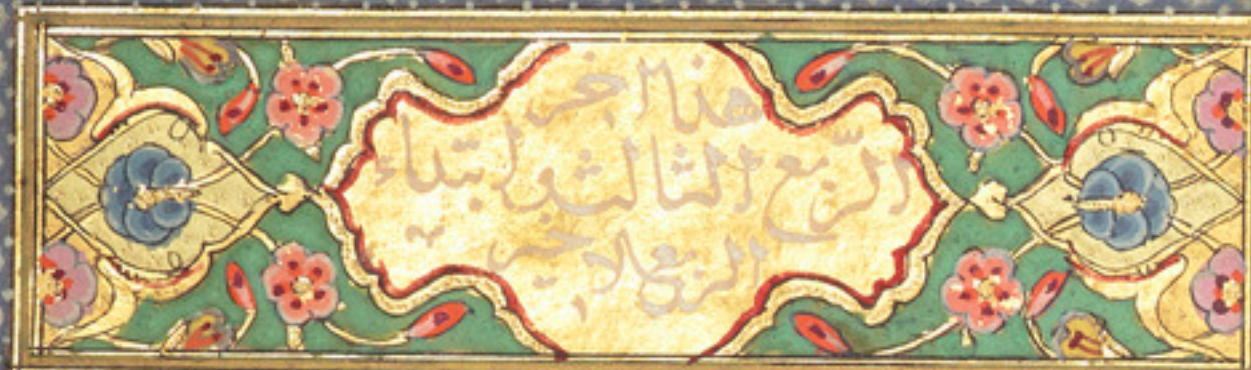 هنا اخر
الربع الثالث وابتداء
الربع الاخير